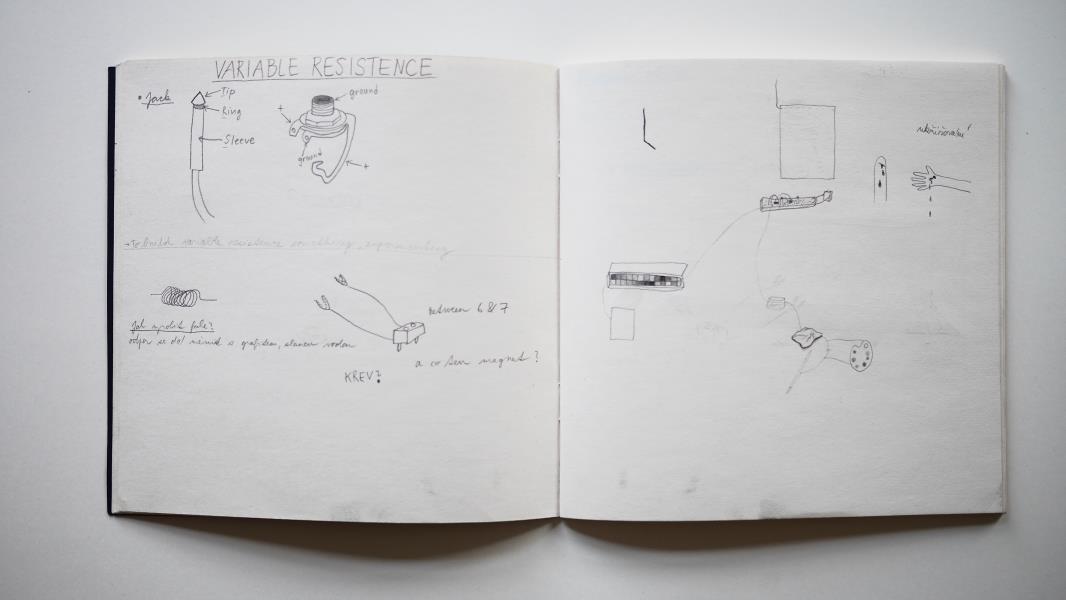 VARIABLE RESISTENCE
• Jack
Tip
Ring
Sleeve
+
ground
ground
+
→ To build variable resistence something, experimenting
Jak
odpor se dá měnit s grafitem, slanou vodou
between 6 & 7
a co ten magnet?
KREV?
ukřižování